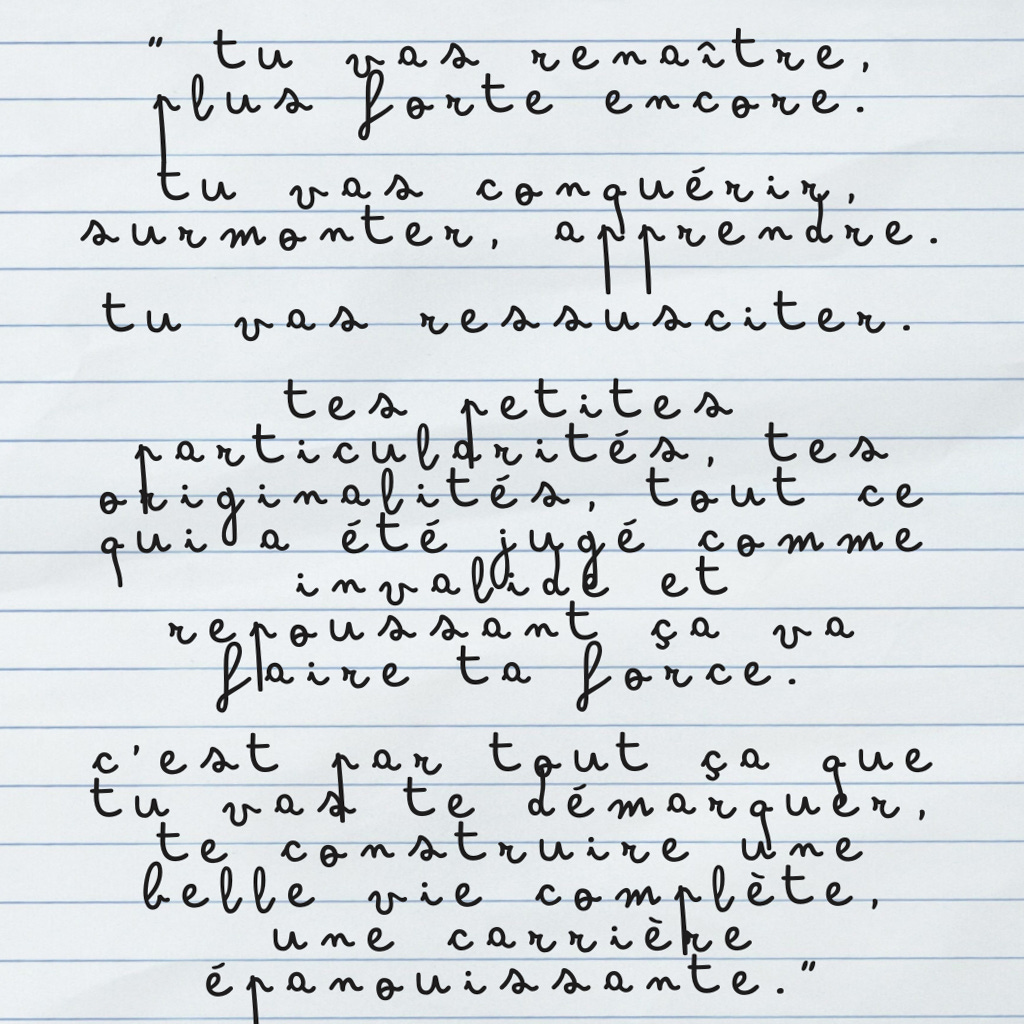 " tu vas renaître,
plus forte encore.
tu vas conquérir,
surmonter, apprendre.
tu vas ressusciter.
tes petites
particularités, tes
originalités, tout ce
qui a été jugé comme
invalide et
repoussant ça va
faire ta force.
c'est par tout ça que
tu vas te démarquer,
te construire une
belle vie complète,
une carrière
épanouissante."